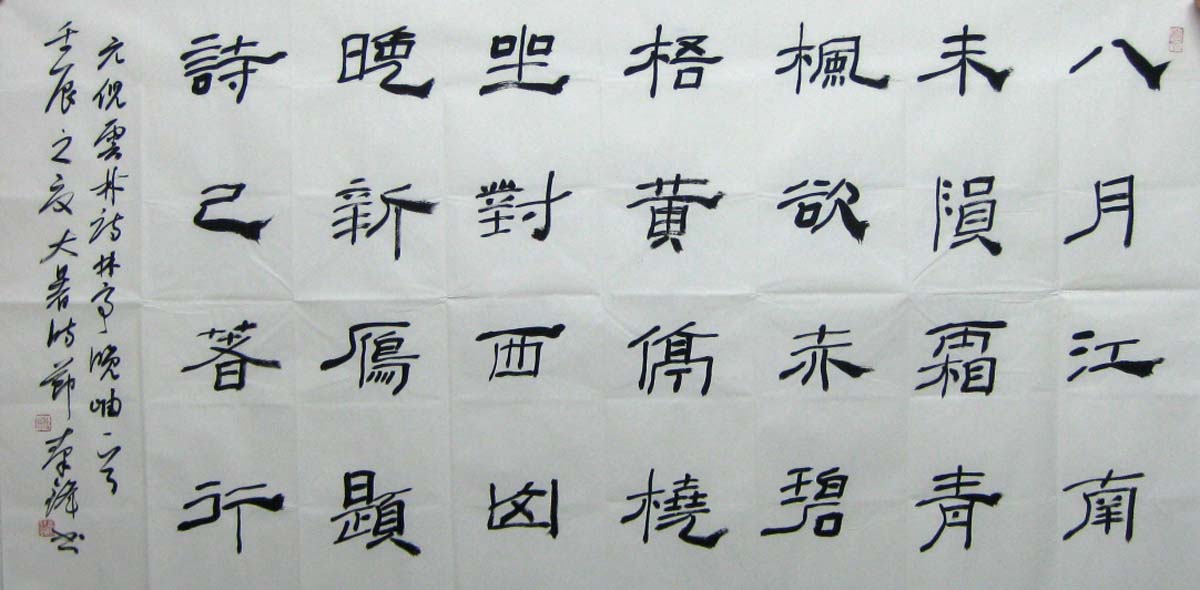 八月江南
未隕霜青
楓欲赤碧
梧黃停橈
坐對西山
晚新鴈題
詩已著行
元倪雲林詩林亭晚岫一首
壬辰之夏大暑時節 鋒書